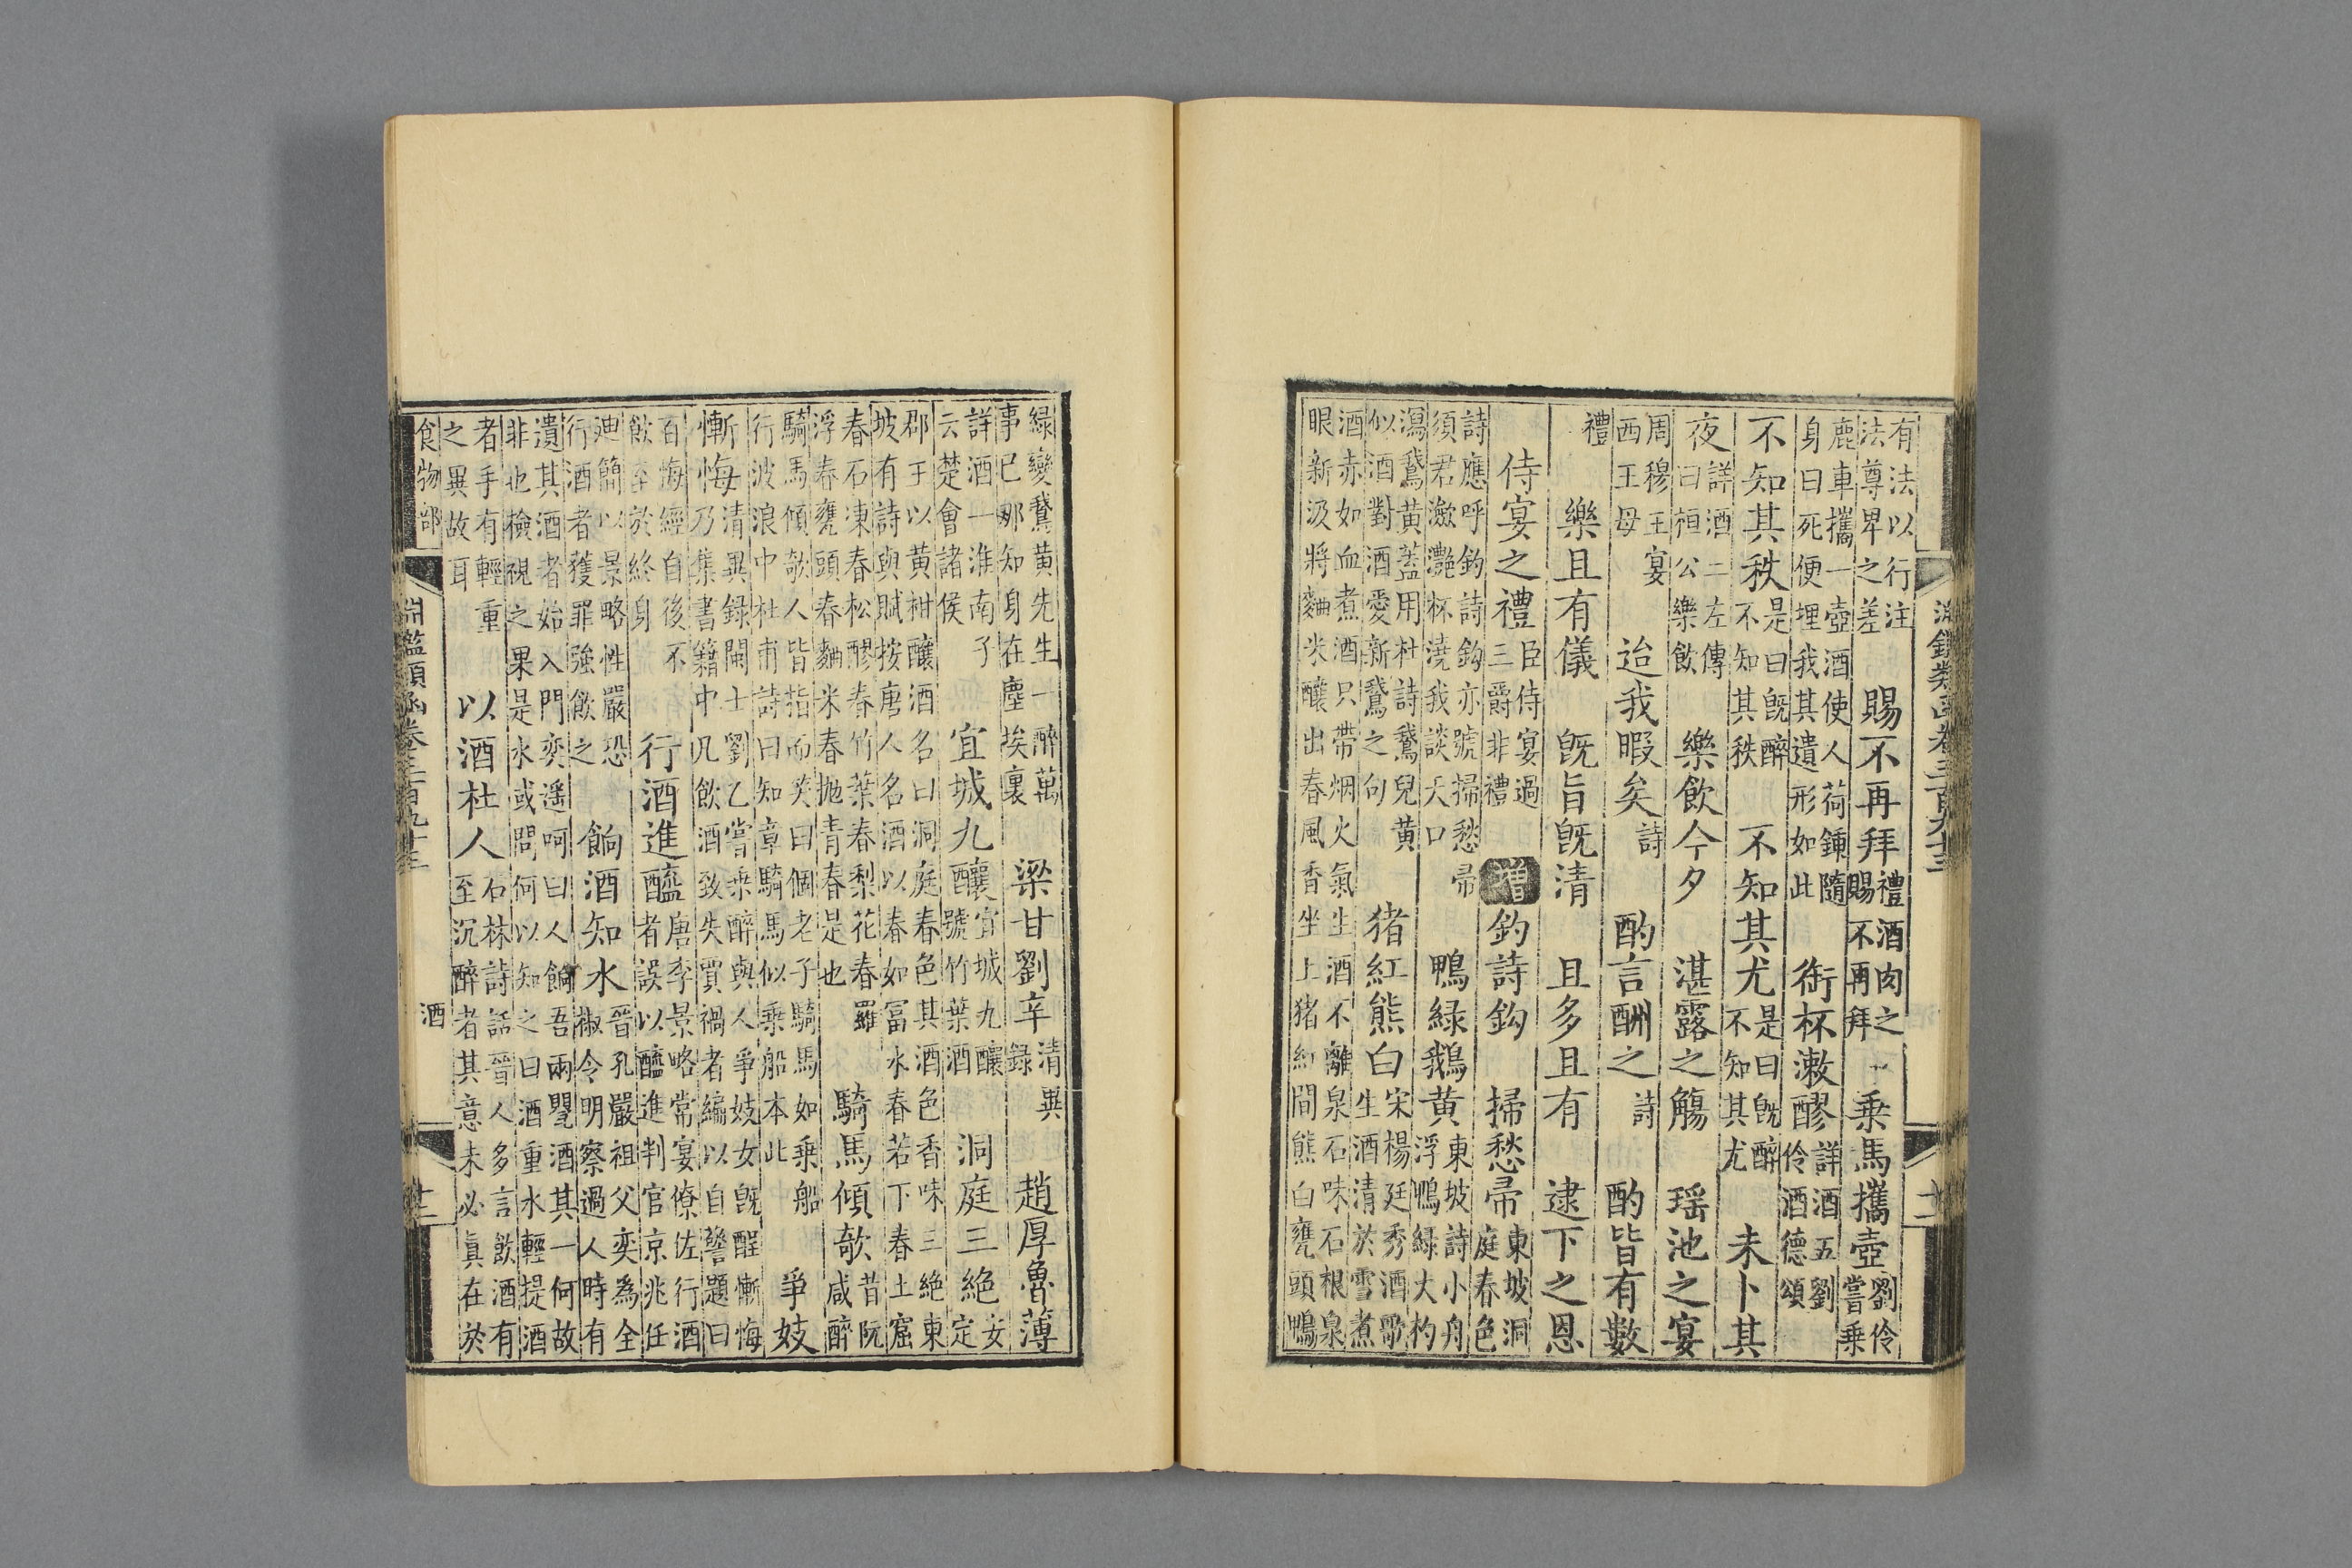 淵鑑類函卷三百九十三
有法以行注
法尊卑之差
賜不再拜
禮酒肉之
賜不再拜
乗馬攜壺
劉伶
嘗乗
鹿車攜一壺酒使人荷鍤隨
身曰死便埋我其遺形如此
銜杯潄醪
詳酒五劉
伶酒德頌
不知其秩
是曰旣醉
不知其秩
不知其尤
是曰旣醉
不知其尤
未卜其
夜
詳酒二左傳
曰桓公樂飲
樂飲今夕 湛露之觴 瑶池之宴
周穆王宴
西王母
迨我暇矣
詩
酌言酬之
詩
酌皆有數
禮
樂且有儀 旣旨旣清 且多且有 逮下之恩
侍宴之禮
臣侍宴過
三爵非禮
增
釣詩鈎 掃愁帚
東坡洞
庭春色
詩應呼釣詩鈎亦號掃愁帚
須君瀲灔杯澆我談天口
鴨緑鵝黄
東坡詩小舟
浮鴨緑大杓
瀉鵞黄蓋用杜詩鵞兒黄
似酒對酒愛新鵞之句
猪紅熊白
宋楊廷秀酒歌
生酒清於雪煮
酒赤如血煮酒只帶烟火氣生酒不離泉石味石根泉
眼新汲將麯米釀出春風香坐上猪紅間熊白甕頭鴨
緑變鵞黄先生一醉萬
事已那知身在塵埃裏
梁甘劉辛
清異
録
趙厚魯薄
詳酒一淮南子
云楚會諸侯
宜城九釀
宜城九釀
號竹葉酒
洞庭三絶
安
定
郡王以黄柑釀酒名曰洞庭春色其酒色香味三絶東
坡有詩與賦按唐人名酒以春如富水春若下春土窟
春石凍春松醪春竹葉春梨花春羅
浮春甕頭春麯米春抛青春是也
騎馬傾欹
昔阮
咸醉
騎馬傾欹人皆指而笑曰個老子騎馬如乗船
行波浪中杜甫詩曰知章騎馬似乗船本此
爭妓
慚悔
清異録閩士劉乙嘗乗醉與人爭妓女旣醒慚悔
乃集書籍中凡飲酒致失賈禍者編以自警題曰
百悔經自後不
飲至於終身
行酒進醯
唐李景略常宴僚佐行酒
者誤以醯進判官京兆任
廸簡以景略性嚴恐
行酒者獲罪強飲之
餉酒知水
晉孔嚴祖父奕為全
椒令明察過人時有
遺其酒者始入門奕遥呵曰人餉吾兩甖酒其一何故
非也檢視之果是水或問何以知之曰酒重水輕提酒
者手有輕重
之異故耳
以酒杜人
石林詩話晉人多言飲酒有
至沉醉者其意未必眞在於
食物部
淵鑑類函卷三百九十三
酒
十二